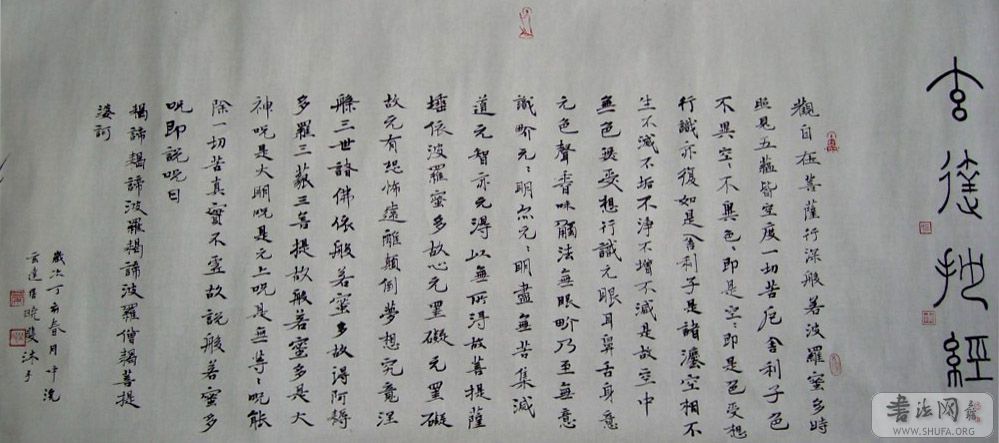 經
觀自在菩薩行深般若波羅蜜多時
照見五蘊皆空度一切苦厄舍利子色
不異空〻不異色〻即是空〻即是色受想
行識亦復如是舍利子是諸灋空相不
生不滅不垢不淨不增不滅是故空中
無色無受想行識无眼耳鼻舌身意
无色聲香味觸法無眼界乃至無意
識界无〻明亦无〻明盡無苦集滅
道无智亦无得以無所得故菩提薩
埵依波羅蜜多故心无罣礙无罣礙
故无有恐怖遠離顛倒夢想究竟涅
槃三世諸佛依般若蜜多故得阿耨
多羅三藐三菩提故般若蜜多是大
神呪是大明呪是无上呪是無等〻呪能
除一切苦真實不虛故說般若蜜多
呪即說呪曰
揭諦揭諦波羅揭諦波羅僧揭菩提
婆訶
歲次丁亥春月中浣
沐手
书法网
WWW.SHUFA.ORG